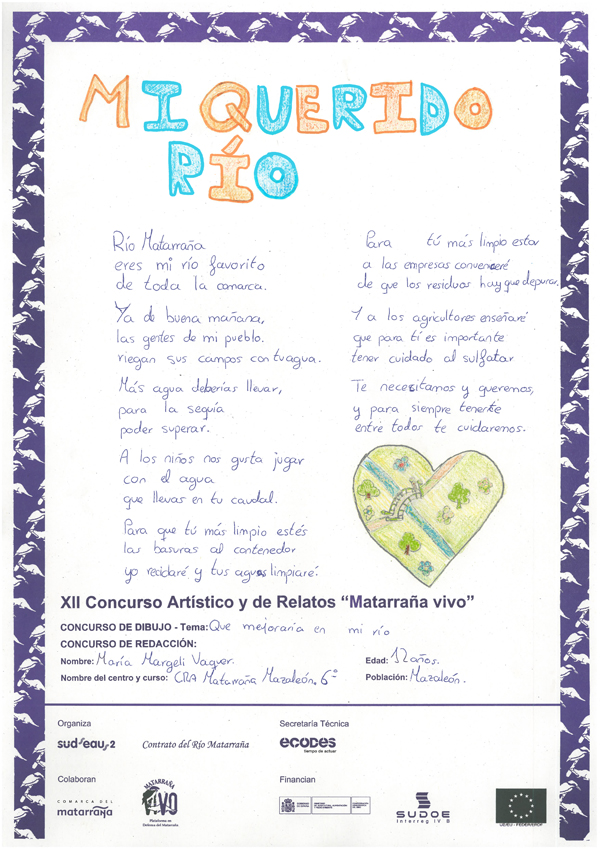 MI QUERIDO
RÍO
Río Matarraña
eres mi río favorito
de toda la comarca.
Ya de buena mañana,
las gentes de mi pueblo
riegan sus campos con tu agua.
Más agua deberías llevar,
para la sequía
poder superar.
A los niños nos gusta jugar
con el agua
que llevas en tu caudal.
Para que tú más limpio estés
las basuras al contenedor
yo reciclaré y tus aguas limpiaré.
Para tú más limpio estar
a las empresas convenceré
de que los residuos hay que depurar.
Y a los agricultores enseñaré
que para ti es importante
tener cuidado al sulfatar
Te necesitamos y queremos,
y para siempre tenerte
entre todos te cuidaremos.
XII Concurso Artístico y de Relatos “Matarraña vivo”
CONCURSO DE DIBUJO - Tema: Que mejoraria en mi río
CONCURSO DE REDACCIÓN:
Nombre: María Margelí Vaquer. Edad: 12 años.
Nombre del centro y curso: CRA Matarraña Mazaleón. 6º Población: Mazaleón.
Organiza
sud'eau 2 Contrato del Río Matarraña
Secretaría Técnica
ecodes
tiempo de actuar
Colaboran
COMARCA DEL
matarraña
MATARRAÑA
VIVO
Plataforma en
Defensa del Matarraña
Financian
SUDOE
Interreg IV B
UE/EU - FEDER/ERDF